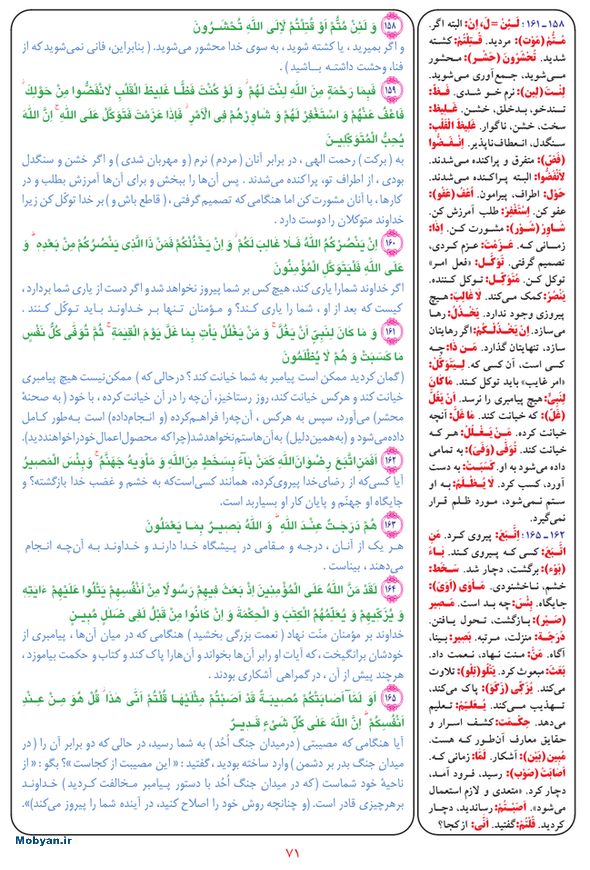 ١٥٨ وَ لَئِنْ مُتُّمْ أَوْ قُتِلْتُمْ لَاِلَی اللّٰهِ تُحْشَرُونَ
و اگر بمیرید ، یا کشته شوید ، به سوی خدا محشور می‌شوید . ( بنابراین، فانی نمی‌شوید که از
فنا، وحشت داشته باشید ) .
١٥٩ فَبِمَا رَحْمَةٍ مِنَ اللّٰهِ لِنْتَ لَهُمْ وَ لَوْ کُنْتَ فَظًّا غَلِیظَ الْقَلْبِ لَانْفَضُّوا مِنْ حَوْلِكَ
فَاعْفُ عَنْهُمْ وَ اسْتَغْفِرْ لَهُمْ وَ شَاوِرْهُمْ فِی الْاَمْرِ فَاِذَا عَزَمْتَ فَتَوَکَّلْ عَلَی اللّٰهِ اِنَّ اللّٰهَ
یُحِبُّ الْمُتَوَکِّلِینَ
به ( برکت ) رحمت الهی ، در برابر آنان ( مردم ) نرم ( و مهربان شدی ) و اگر خشن و سنگدل
بودی ، از اطراف تو، پراکنده می‌شدند . پس آن‌ها را ببخش و برای آن‌ها آمرزش بطلب و در
کارها ، با آنان مشورت کن اما هنگامی که تصمیم گرفتی ، ( قاطع باش و ) بر خدا توکّل کن زیرا
خداوند متوکلان را دوست دارد .
١٦٠ اِنْ یَنْصُرْکُمُ اللّٰهُ فَلَا غَالِبَ لَکُمْ وَ اِنْ یَخْذُلْکُمْ فَمَنْ ذَا الَّذِی یَنْصُرُکُمْ مِنْ بَعْدِهِ وَ
عَلَی اللّٰهِ فَلْیَتَوَکَّلِ الْمُؤْمِنُونَ
اگر خداوند شما را یاری کند، هیچ کس بر شما پیروز نخواهد شد و اگر دست از یاری شما بردارد،
کیست که بعد از او ، شما را یاری کند؟ و مؤمنان تنها بر خداوند باید توکّل کنند .
١٦١ وَ مَا کَانَ لِنَبِیٍّ اَنْ یَغُلَّ وَ مَنْ یَغْلُلْ یَأْتِ بِمَا غَلَّ یَوْمَ الْقِیٰمَةِ ثُمَّ تُوَفّٰی کُلُّ نَفْسٍ
مَا کَسَبَتْ وَ هُمْ لَا یُظْلَمُونَ
(گمان کردید ممکن است پیامبر به شما خیانت کند؟ درحالی که ) ممکن نیست هیچ پیامبری
خیانت کند و هرکس خیانت کند، روز رستاخیز، آن‌چه را در آن خیانت کرده ، با خود ( به صحنهٔ
محشر) می‌آورد، سپس به هرکس ، آن‌چه را فراهم کرده (و انجام داده) است به‌طور کامل
داده می‌شود و (به همین دلیل) به آن‌ها ستم نخواهد شد (چرا که محصول اعمال خود را خواهند دید).
١٦٢ اَفَمَنِ اتَّبَعَ رِضْوَانَ اللّٰهِ کَمَنْ بَاءَ بِسَخَطٍ مِنَ اللّٰهِ وَ مَأْوٰیهُ جَهَنَّمُ وَ بِئْسَ الْمَصِیرُ
آیا کسی که از رضای خدا پیروی کرده، همانند کسی است که به خشم و غضب خدا بازگشته؟ و
جایگاه او جهنّم و پایان کار او بسیار بد است .
١٦٣ هُمْ دَرَجٰتٌ عِنْدَ اللّٰهِ وَ اللّٰهُ بَصِیرٌ بِمَا یَعْمَلُونَ
هر یک از آنان ، درجه و مقامی در پیشگاه خدا دارند و خداوند به آن‌چه انجام
می‌دهند ، بیناست .
١٦٤ لَقَدْ مَنَّ اللّٰهُ عَلَی الْمُؤْمِنِینَ اِذْ بَعَثَ فِیهِمْ رَسُولًا مِنْ اَنْفُسِهِمْ یَتْلُوا عَلَیْهِمْ ءَایٰتِهِ
وَ یُزَکِّیهِمْ وَ یُعَلِّمُهُمُ الْکِتٰبَ وَ الْحِکْمَةَ وَ اِنْ کَانُوا مِنْ قَبْلُ لَفِی ضَلٰلٍ مُبِینٍ
خداوند بر مؤمنان منّت نهاد ( نعمت بزرگی بخشید ) هنگامی که در میان آن‌ها ، پیامبری از
خودشان برانگیخت ، که آیات او را بر آن‌ها بخواند و آن‌ها را پاک کند و کتاب و حکمت بیاموزد ،
هرچند پیش از آن ، در گمراهی آشکاری بودند .
١٦٥ اَوَ لَمَّا اَصَابَتْکُمْ مُصِیبَةٌ قَدْ اَصَبْتُمْ مِثْلَیْهَا قُلْتُمْ اَنّٰی هٰذَا قُلْ هُوَ مِنْ عِنْدِ
اَنْفُسِکُمْ اِنَّ اللّٰهَ عَلٰی کُلِّ شَیْءٍ قَدِیرٌ
آیا هنگامی که مصیبتی ( در میدان جنگ اُحُد ) به شما رسید، در حالی که دو برابر آن را ( در
میدان جنگ بدر بر دشمن ) وارد ساخته بودید ، گفتید : « این مصیبت از کجاست »؟ بگو : « از
ناحیهٔ خود شماست (که در میدان جنگ اُحُد با دستور پیامبر مخالفت کردید ) خداوند
بر هرچیزی قادر است . (و چنانچه روش خود را اصلاح کنید، در آینده شما را پیروز می‌کند)».
١٥٨ـ١٦١: لَـئِنْ = لَ، اِنْ: البته اگر.
مُـتُّمْ (مَوْت): مردید. قُتِلْتُمْ: کشته
شدید. تُحْشَرُونَ (حَشْر): محشور
می‌شوید، جمع‌آوری می‌شوید.
لِنْتَ (لین): نرم خو شدی. فَـظّ:
تندخو، بدخلق، خشن. غَـلیظ:
سخت، خشن، ناگوار. غَلیظَ الْقَلْب:
سنگدل، انعطاف‌ناپذیر. اِنْـفَضُّوا
(فَضّ): متفرق و پراکنده می‌شدند.
لَانْفَضُّوا: البته پراکنده می‌شدند.
حَوْل: اطراف، پیرامون. اُعْفُ (عَفُو):
عفو کن. اِسْتَغْفِرْ: طلب آمرزش کن.
شاوِرْ (شَوْر): مشورت کن. اِذا:
زمانی که. عَـزَمْتَ: عزم کردی،
تصمیم گرفتی. تَوَکَّلْ: «فعل امر»
توکل کن. مُتَوَکِّل: توکل کننده.
یَنْصُرُ: کمک می‌کند. لا غالِبَ: هیچ
پیروزی وجود ندارد. یَخْذُلُ: رها
می‌سازد. اِنْ یَخْذُلْـکُمْ: اگر رهایتان
سازد، تنهایتان گذارد. مَنْ ذا: چه
کسی است، آن کسی که. لِیَتَوَکَّلْ:
«امر غایب» باید توکل کند. ما کانَ
لِنَبِیٍّ: هیچ پیامبری را نرسد. اَنْ یَغُلَّ
(غَلّ): که خیانت کند. ما غَلَّ: آنچه
خیانت کرده. مَنْ یَغْلُلْ: هر که
خیانت کند. تُوَفّٰی (وَفْی): به تمامی
داده می‌شود به او. کَسَبَتْ: به دست
آورد، کسب کرد. لا یُظْلَمُ: به او
ستم نمی‌شود، مورد ظلم قرار
نمی‌گیرد.
١٦٢ـ١٦٥: اِتَّبَعَ: پیروی کرد. مَنِ
اتَّبَعَ: کسی که پیروی کند. باءَ
(بَوْء): برگشت، دچار شد. سَخَط:
خشم، ناخشنودی. مَأوی (اَوْی):
جایگاه. بِئْسَ: چه بد است. مَـصیر
(صَیْر): بازگشت، تحول یافتن.
دَرَجَة: منزلت، مرتبه. بَصیر: بینا،
آگاه. مَنَّ: منت نهاد، نعمت داد.
بَعَثَ: مبعوث کرد. یَتْلُو(تِلْو): تلاوت
می‌کند. یُزَکّی (زَکْو): پاک می‌کند،
تهذیب می‌کند. یُعَلِّمُ: تعلیم
می‌دهد. حِکْمَت: کشف اسرار و
حقایق معارف آن‌طور که هست.
مُبین (بَیْن): آشکار. لَمّا: زمانی که.
اَصابَتْ (صَوْب): رسید، فرود آمد،
دچار کرد. «متعدی و لازم استعمال
می‌شود». اَصَبْتُمْ: رساندید، دچار
کردید. قُلْتُمْ: گفتید. اَنّٰی: از کجا؟
Mobyan.ir
٧١